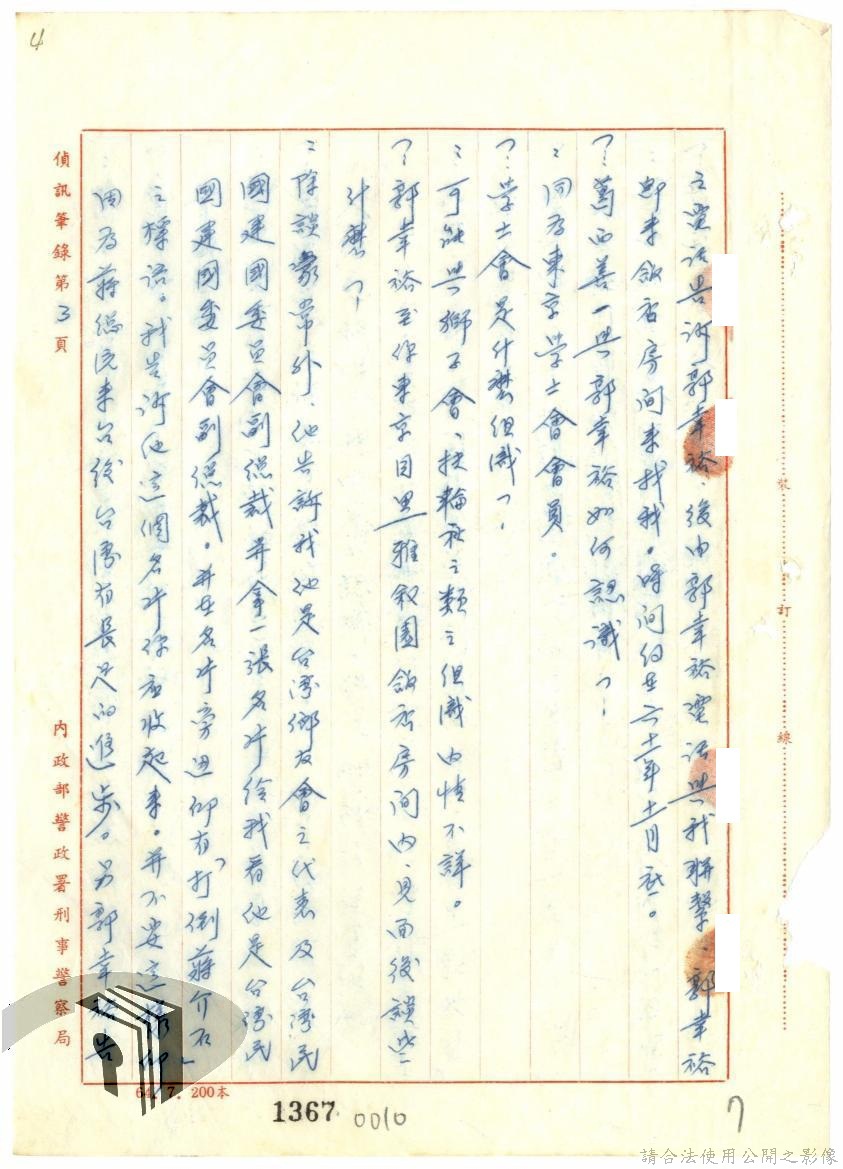 4
之電話告訴郭幸裕、後由郭幸裕電話與我聯繫、郭幸裕
即來飯店房間來找我。時間約在六十一年十一月底。
?:萬西善一與郭幸裕如何認識?
:同為東京學士會會員。
?:學士會是什麼組織?
:可能與獅子會、扶輪社之類之組織內情不詳。
?:郭幸裕至你東京目黑雅叙園飯店房間內、見面後談些
什麼?
:除談家常外、他告訴我他是台湾鄉友會之代表及台湾民
國建國委員會副總裁并拿一張名片給我看他是台湾民
國建國委員會副總裁。并在名片旁邊印有「打倒蔣介石」
之標語。我告訴他這個名片你應收起來。并不要這樣印
因為蔣總統來台後台湾有長足的進步。另郭幸裕告
偵訊筆錄第3頁
內政部警政署刑事警察局
裝訂線
64. 7. 200本
1367
0010
7
請合法使用公開之影像